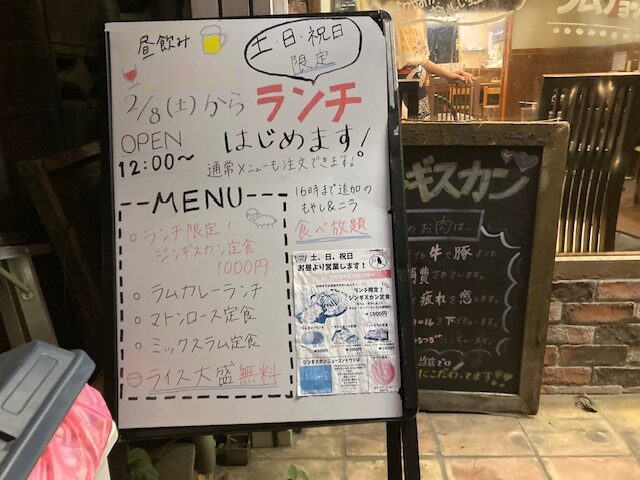 昼飲み
土・日・祝日
限定
2/8(土)から
ランチ
OPEN
12:00〜
はじめます!
通常メニューも注文できます!
MENU
ランチ限定!
ジンギスカン定食
1000円
ラムカレーランチ
マトンロース定食
ミックスラム定食
ライス大盛 無料
16時まで追加の
もやし&ニラ
食べ放題
土、日、祝日
お昼より営業します!
ランチ限定!
ジンギスカン定食
1000円
ギスカン
のお肉は…
牛や豚より
消費
されています。
疲れを癒します。
ールを下
当店では
にこだわってます!!